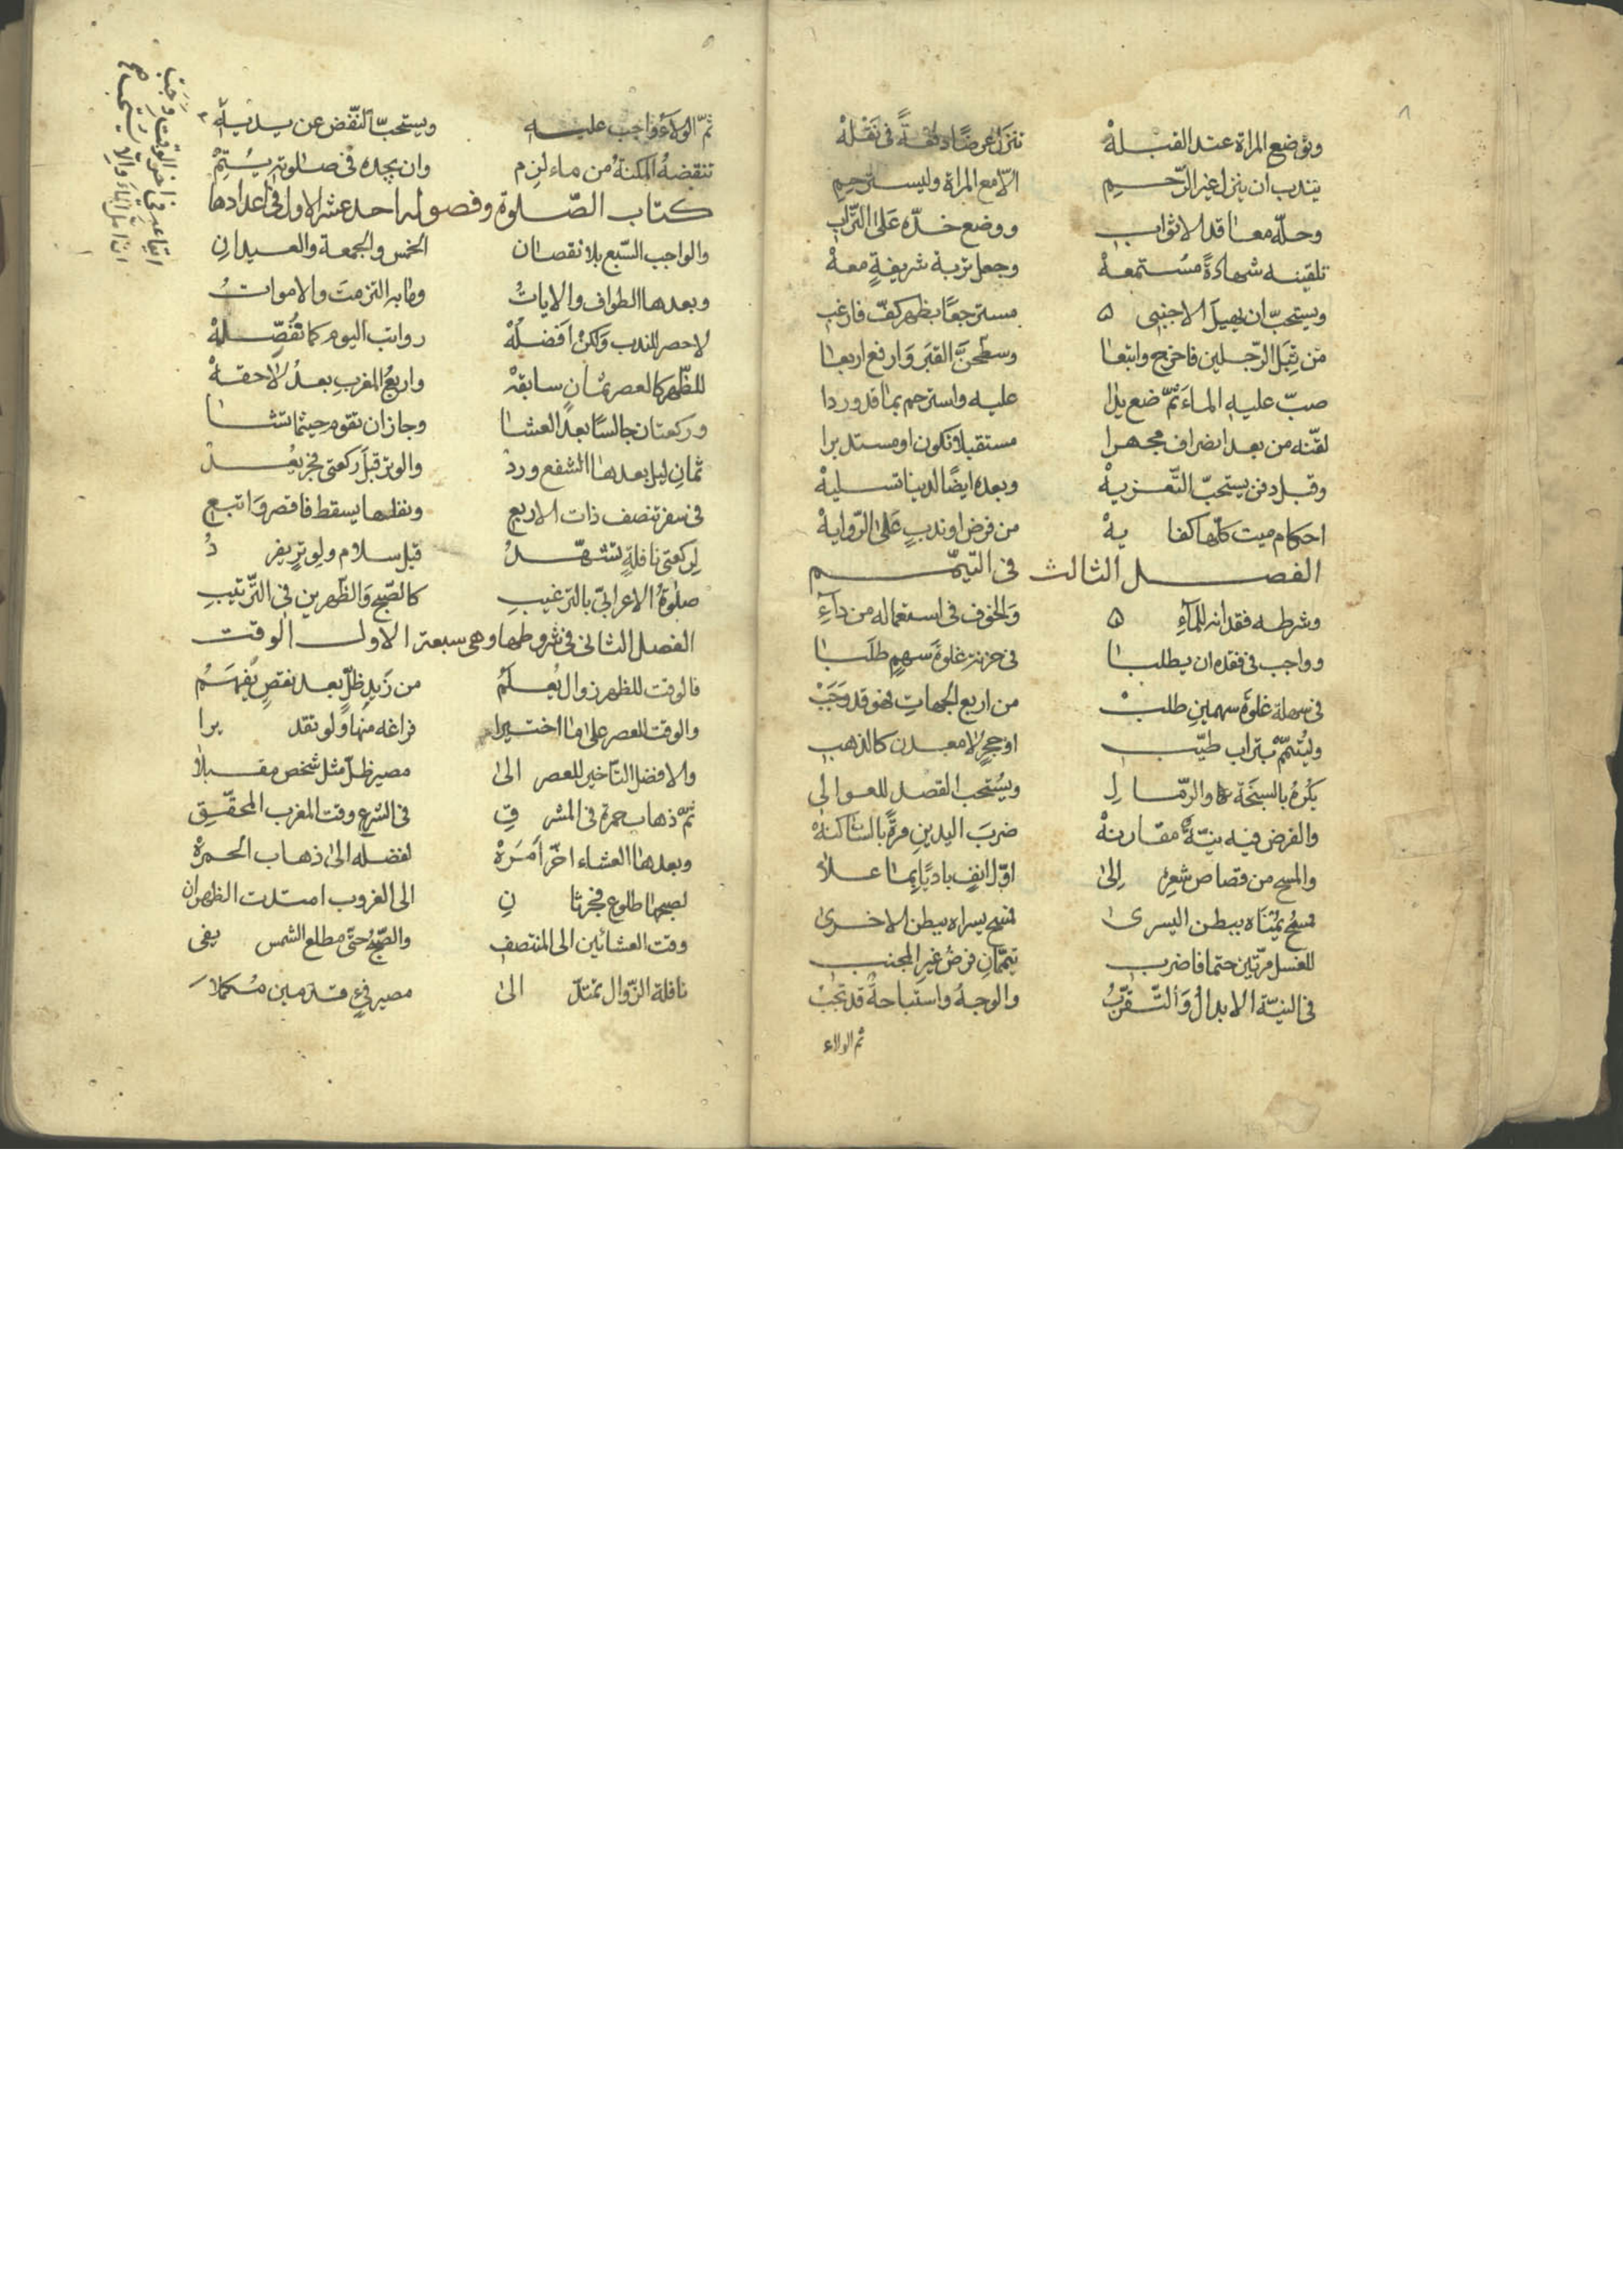 ٨
وتوضع المراة عند القبلهْ تنزل عرضًا دفعةً فى نقلهْ
يندب ان ينزل غير الرّحم الّا مع المراة وليسترحمِ
وحلّه معاقد الاثواب ووضع خدّه عَلى التّراب
تلقينه شهادةً مُستمعهْ وجعل تربة شريفةٍ معهْ
ويستحبّ ان يهيلَ الاجنبى مسترجعًا بظهر كفّ فارغب
من قِبَل الرّجلين فاخرج واتبعا وسطّحنّ القبَر وَارفع اربعا
صبّ عليه الماءَ ثمّ ضع يدا عليه واسترحم بما قد وردا
لقّنه من بعد انصراف مجهرا مستقبلا وتكون او مستدبرا
وقبل دفن يستحبّ التّعزيهْ وبعده ايضًا لدينا تسليهْ
احكام ميت كلّها كفايهْ من فرض او ندبٍ عَلى الرّوايهْ
الفصل الثالث فى التيمّم
وشرطه فقدانه للمآءِ وَالخوف فى استعماله من دآءِ
وواجب فى فقده ان يطلبا فى حزنةٍ غلوة سهمٍ طلَبا
فى سهلة غلوة سهمينِ طلبْ من اربع الجهاتِ فهو قد وَجَبْ
وليُتمّم بتراب طيّب او حجرٍ لا معدن كالذهب
يكره بالسبخة والرّمالِ ويُستحب القصد للعوالى
والفرض فيه نيّة مقارنهْ ضربَ اليدينِ مرةً بالسّاكنهْ
والمسح من قصاص شعرٍ اِلى اوّل انفٍ باديًا بما علا
مسح يمناه ببطن اليسرى مسح يسراه ببطن الاخرى
للغسل مرّتين حتما فاضرب تيمّمانِ فرضُ غيرِ المجنب
فى النيّة الابدالُ وَالتّقرّبُ والوجهُ واستباحةٌ قد تجبْ
ثم الولاء
ثمّ الولآءُ واجب عليه ويستحبّ النّفض عن يديهِ
تنقضهُ المكنةُ من ماء لزم وان يجده فى صلوته يُتِمّْ
كتاب الصّلوة وفصوله احد عشر الاول فى اعدادها
والواجب السّبع بلا نقصان الخمس والجمعة والعيدانِ
وبعدها الطواف والاياتُ وما به التزمتَ والامواتُ
لا حصر للندب وَلكن اَفضلهْ رواتب اليوم كما نُفصّلهْ
للظّهر كالعصر ثمانٍ سابقهْ واربعُ المغربِ بعدُ لاحقهْ
وركعتان جالسًا بعد العشا وجاز ان تقوم حيثما تشا
ثمانِ ليل بعدها الشفع وردْ والوتر قبل ركعتى فجر يُعدْ
فى سفر تنصف ذات الاربع ونفلها يسقط فاقصر وَاتبع
لركعتى نافلةٍ تشهّدُ قبل سلام ولوترٍ يفردُ
صلوةُ الاعرابىّ بالترغيبِ كالصّبح وَالظّهرين فى التّرتيبِ
الفصل الثانى فى شروطها وهى سبعة الاول الوقت
فالوقت للظهر زوال يُعلَمُ من زَيدِ ظلٍّ بعد نقصٍ يُفهَمُ
والوقت للعصر على ما اختيرا فراغه منها ولو تقديرا
والافضل التاخير للعصر الى مصير ظلّ مثل شخص مقبلا
ثمّ ذهاب حمرة فى المشرقِ فى الشرع وقت المغرب المحقّقِ
وبعدها العشاء اخّر اَمرهْ لفضله الى ذهاب الحمرهْ
لصبحها طلوع فجر ثانِ الى الغروب امتدّت الظهران
وقت العشائين الى المنتصف والصّبحُ حتّى مطلع الشمس يفى
نافلة الزّوال تمتدّ الى مصير فئٍ قدمين مُكملا